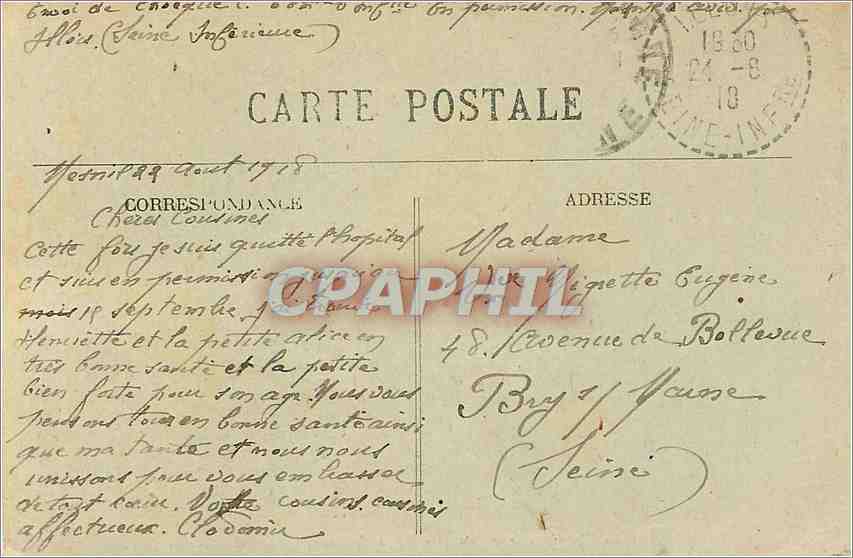 Envoi de
Illois. (Seine Inférieure)
1930
24 -8
18
SEINE-INFRE
CARTE POSTALE
Mesnil 22 Aout 1918
CORRESPONDANCE
ADRESSE
Cheres Cousines
Cette fois je suis quitté l'hopital
et suis en permission jusqu'au
mois 18 septembre j'ai trouvé
Henriette et la petite alice en
très bonne santé et la petite
bien forte pour son age. Nous vous
pensons tous en bonne santé ainsi
que ma tante et nous nous
unissons pour vous embrasser
de tout cœur. Votre cousins cousines
affectueux. Clodomir
Madame
Vve Mignette Eugène
48. Avenue de Bellevue
Bry s/ Marne
(Seine)
CPAPHIL